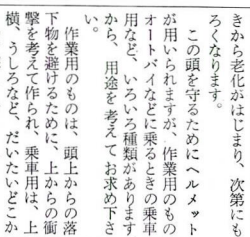 きから老化がはじまり、次第にも
ろくなります。
この頭を守るためにヘルメット
が用いられますが、作業用のもの
オートバイなどに乗るときの乗車
用など、いろいろ種類があります
から、用途を考えてお求め下さ
い。
作業用のものは、頭上からの落
下物を避けるために、上からの衝
撃を考えて作られ、乗車用は、上
横、うしろなど、だいたいどこか